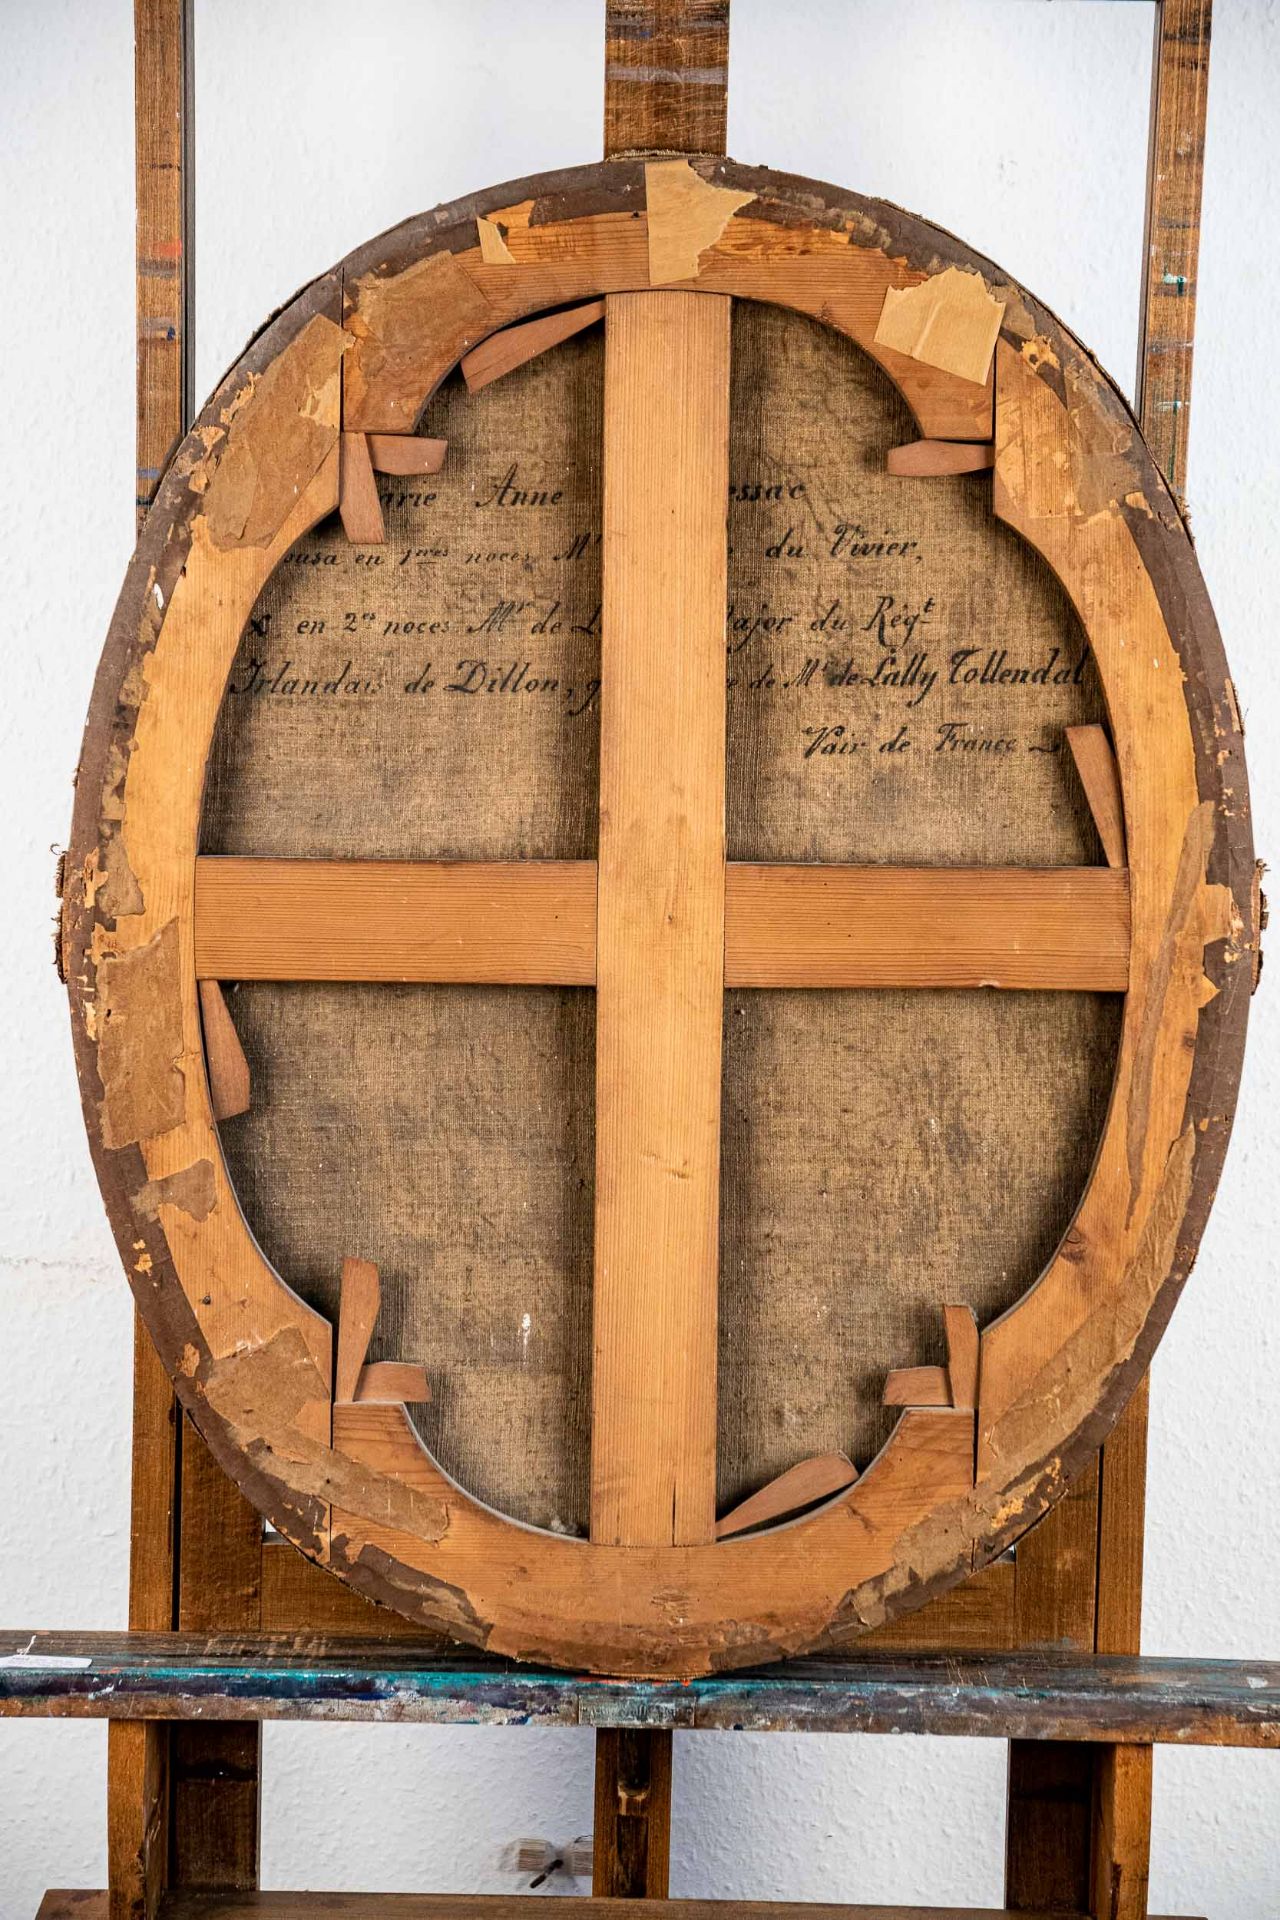 arie Anne essac
ousa en 1ères noces Mr e du Vivier,
& en 2es noces Mr de L ajor du Régt
Irlandais de Dillon, g e de Mr de Lally Tollendal
Pair de France